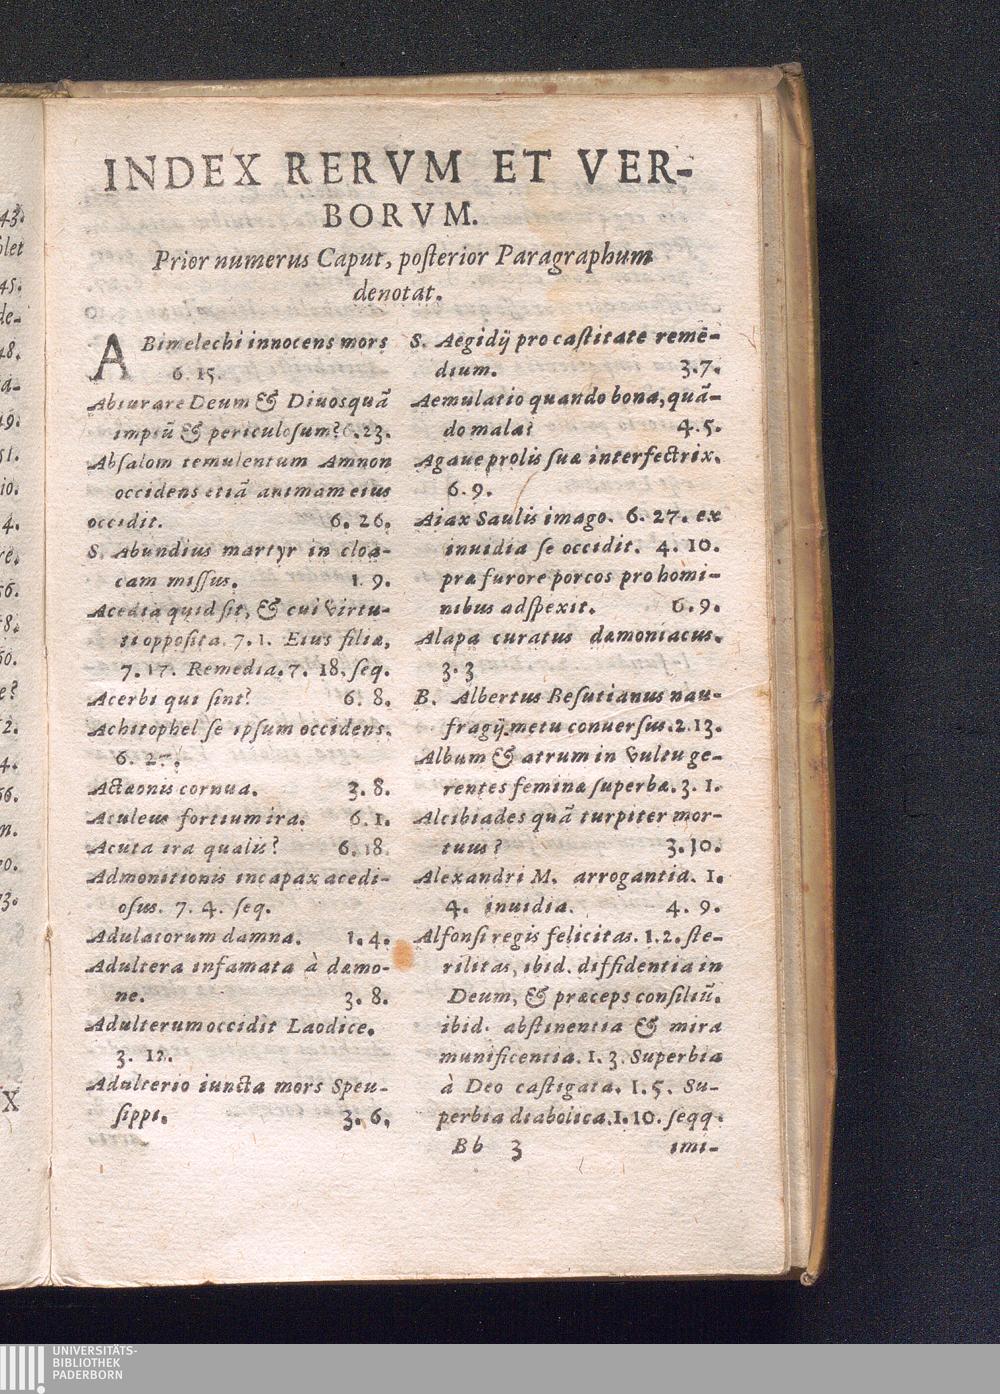 INDEX RERVM ET VER-
BORVM.
Prior numerus Caput, poſterior Paragraphum
denotat.
ABimelechi innocens mors
6. 15.
Abiurare Deum & Diuos quã
impiũ & periculoſum? 6. 23.
Abſalom temulentum Amnon
occidens etiã animam eius
occidit. 6. 26.
S. Abundius martyr in cloa-
cam miſſus. 1 9.
Acedia quid ſit, & cui virtu-
ti oppoſita. 7. 1. Eius filiæ,
7. 17. Remedia. 7. 18. ſeq.
Acerbi qui ſint? 6. 8.
Achitophel ſe ipſum occidens.
6. 27.
Actæonis cornua. 3. 8.
Aculeus fortium ira. 6. 1.
Acuta ira qualis? 6. 18
Admonitionis incapax acedi-
oſus. 7. 4. ſeq.
Adulatorum damna. 1. 4.
Adultera infamata à dæmo-
ne. 3. 8.
Adulterum occidit Laodice.
3. 12.
Adulterio iuncta mors Speu-
ſippi. 3. 6.
S. Aegidij pro caſtitate remē-
dium. 3. 7.
Aemulatio quando bona, quā-
do mala? 4. 5.
Agaue prolis ſuæ interfectrix.
6. 9.
Aiax Saulis imago. 6. 27. ex
inuidia ſe occidit. 4. 10.
præ furore porcos pro homi-
nibus adſpexit. 6. 9.
Alapa curatus dæmoniacus.
3. 3
B. Albertus Beſutianus nau-
fragij metu conuerſus. 2. 13.
Album & atrum in vultu ge-
rentes feminæ ſuperbæ. 3. 1.
Alcibiades quã turpiter mor-
tuus? 3. 10.
Alexandri M. arrogantia. 1.
4. inuidia. 4. 9.
Alfonſi regis felicitas. 1. 2. ſte-
rilitas, ibid. diffidentia in
Deum, & præceps conſiliũ.
ibid. abſtinentia & mira
munificentia. 1. 3. Superbia
à Deo caſtigata. 1. 5. Su-
perbia diabolica. 1. 10. ſeqq.
Bb 3 imi-
UNIVERSITÄTS-
BIBLIOTHEK
PADERBORN